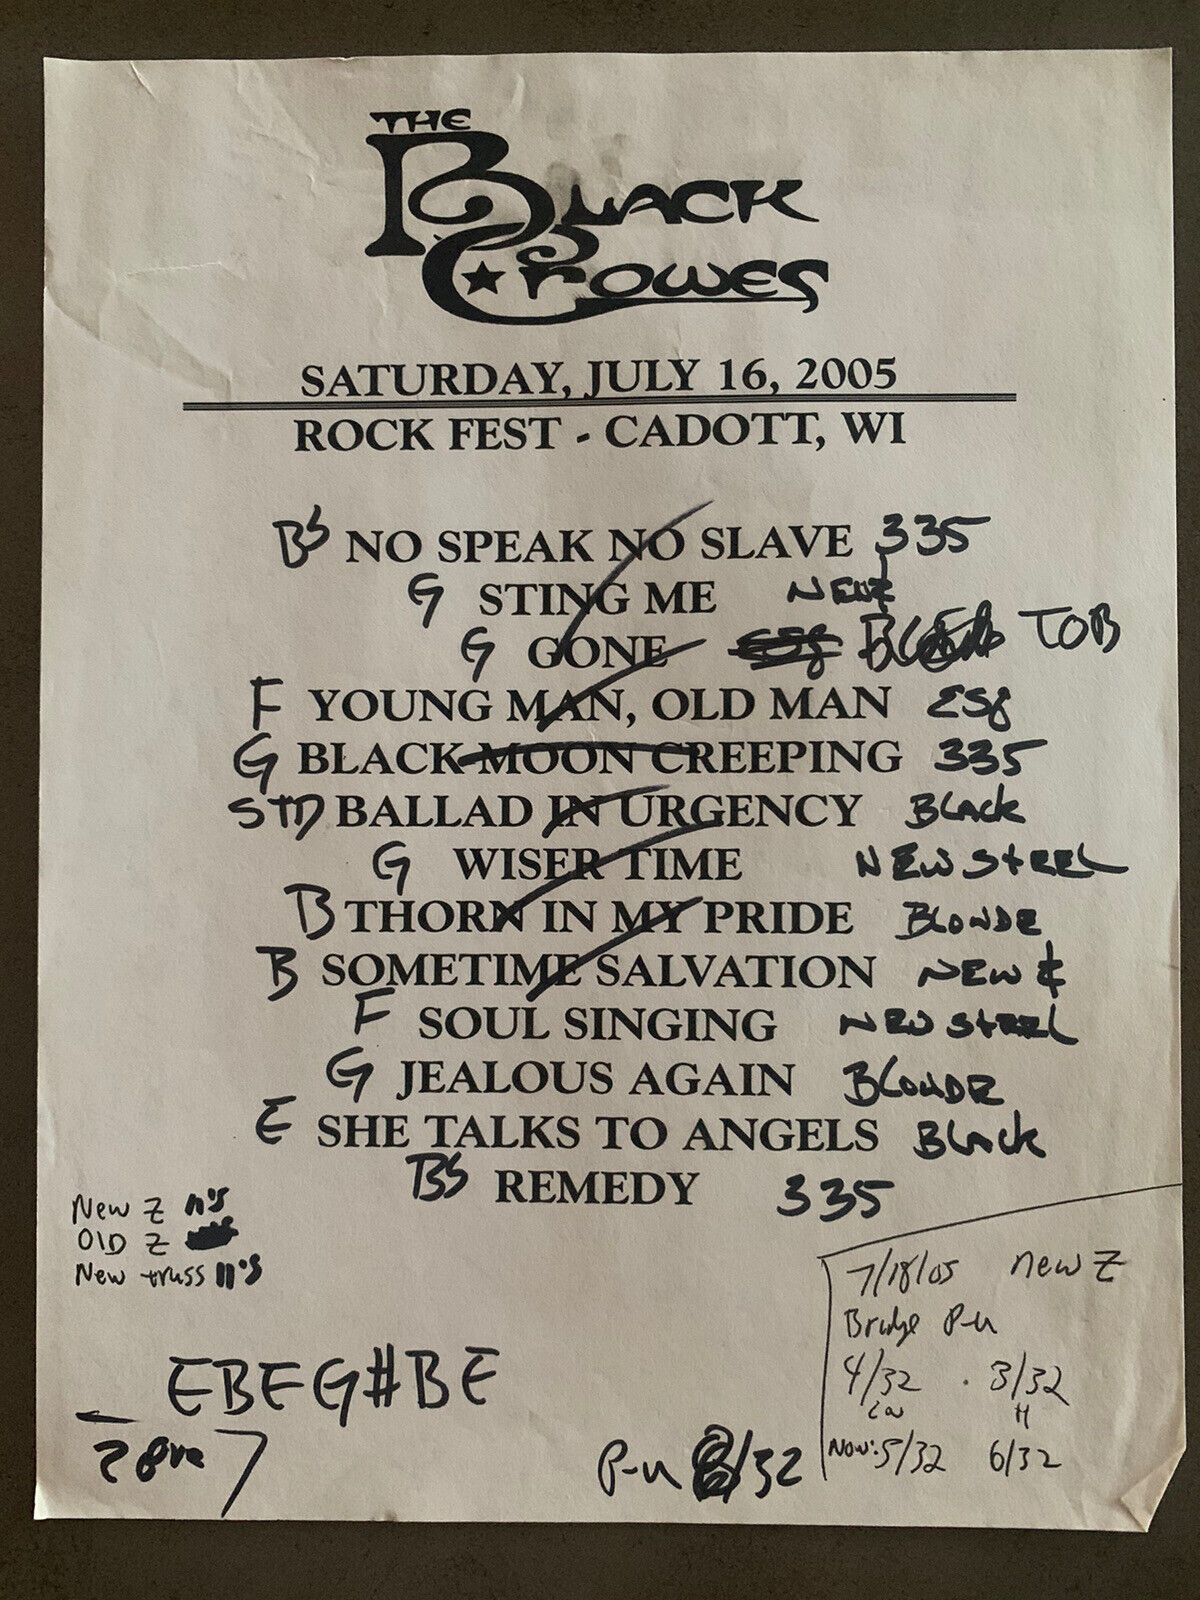 THE
BLACK
CROWES
SATURDAY, JULY 16, 2005
ROCK FEST - CADOTT, WI
B'S NO SPEAK NO SLAVE 335
G STING ME NEW Z
G GONE TOB
F YOUNG MAN, OLD MAN ESG
G BLACK MOON CREEPING 335
STD BALLAD IN URGENCY BLACK
G WISER TIME NEW STEEL
B THORN IN MY PRIDE BLONDE
B SOMETIME SALVATION NEW Z
F SOUL SINGING NEW STEEL
G JEALOUS AGAIN BLONDE
E SHE TALKS TO ANGELS BLACK
B'S REMEDY 335
New Z 11's
OLD Z
New truss 11's
7/18/05 new Z
Bridge P-u
4/32 . 3/32
Low H
Now: 5/32 6/32
EBEG#BE
P-u /32